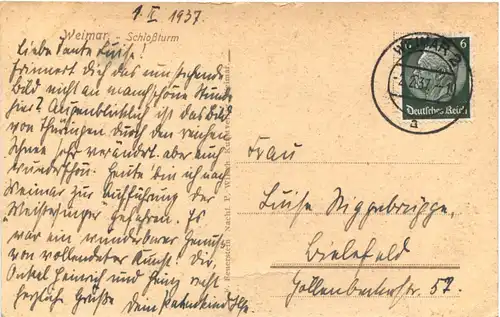 1. II. 1937.
Weimar - Schloßturm
Liebe Tante Luise!
Erinnert Dich das umstehende
Bild nicht an manch schöne Stunde
hier? Augenblicklich ist das Bild
von Thüringen durch den reichen
Schnee sehr verändert, aber auch
wunderschön. Heute bin ich nach
Weimar zur Aufführung der
Meistersinger gefahren. Es
war ein wunderbarer Genuß
von vollendeter Kunst. Dir,
Onkel Heinrich und recht
herzliche Grüße Dein Patenkind
WEIMAR 2
a
6
Deutsches Reich
Frau
Luise Niggebrügge,
Bielefeld
Gellershagen 52.